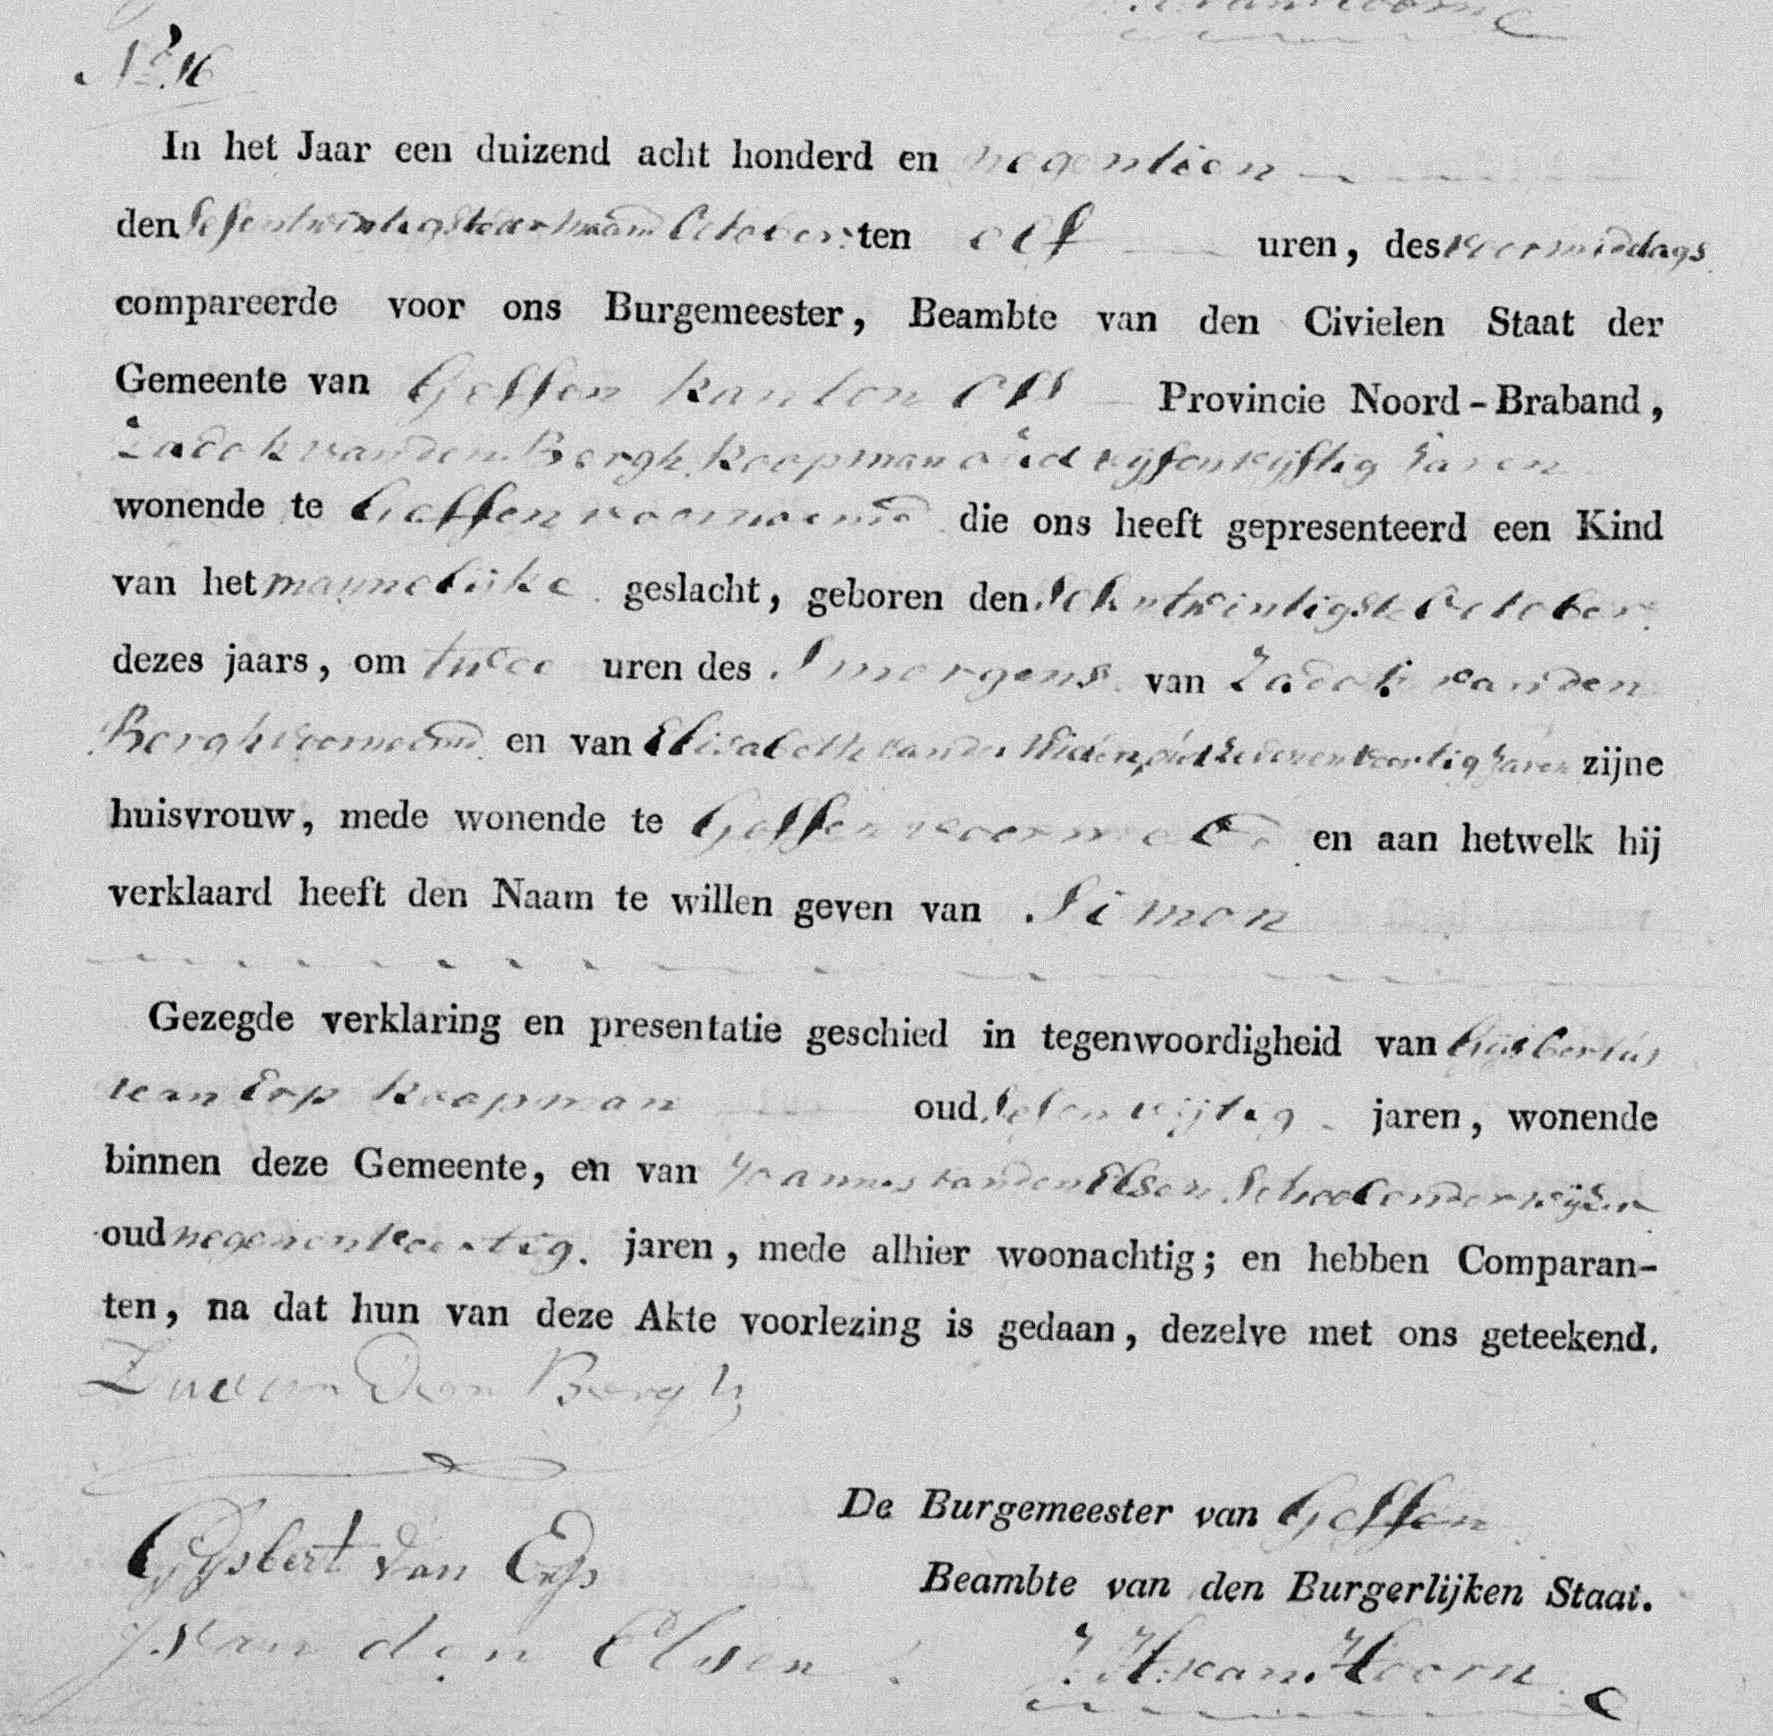 N.º 16
In het Jaar een duizend acht honderd en negentien
den Sesentwintigste der Maand October ten elf uren, des voormiddags
compareerde voor ons Burgemeester, Beambte van den Civielen Staat der
Gemeente van Geffen kanton Oss Provincie Noord-Braband,
Zadok van den Bergh koopman oud vijfenvijftig Jaren
wonende te Geffen voornoemd die ons heeft gepresenteerd een Kind
van het mannelijke geslacht, geboren den October
dezes jaars, om twee uren des Smorgens van Zadok van den
Bergh voornoemd en van Elisabeth van der oud zevenenveertig Jaren zijne
huisvrouw, mede wonende te Geffen voormeld en aan hetwelk hij
verklaard heeft den Naam te willen geven van Simon
Gezegde verklaring en presentatie geschied in tegenwoordigheid van Gijsbertus
van Erp koopman oud Sesenvijftig jaren, wonende
binnen deze Gemeente, en van Joannes van den Elsen Schoolonderwijzer
oud negenenveertig jaren, mede alhier woonachtig; en hebben Comparan-
ten, na dat hun van deze Akte voorlezing is gedaan, dezelve met ons geteekend.
van Den Bergh
De Burgemeester van Geffen
Gijsbert van Erp
Beambte van den Burgerlijken Staat.
J. van den Elsen
J. H. van Hoorn